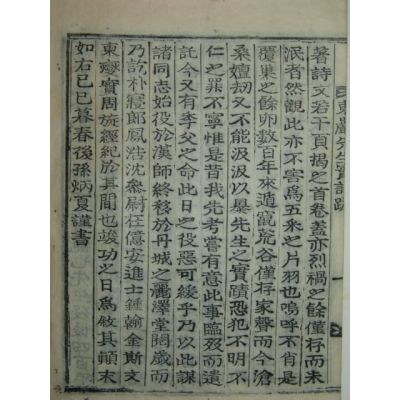 東巖先生實記跋
一
著詩文若干頁揭之首卷蓋亦烈禍之餘僅存而未
泯者然觀此亦不害爲五采之片羽也嗚呼不肖是
覆巢之餘卵數百年來遁竄荒谷僅存家聲而今滄
桑嬗劫又不能汲汲以暴先生之實蹟恐犯不明不
仁之罪不寧惟是昔我先考嘗有意此事臨歿而遺
託今又有季父之命此日之役惡可緩乎乃以此謀
諸同志始役於漢師終移於丹城之麗澤堂閱歲而
乃訖朴寢郎鳳浩沈尉億安進士鍾翰金斯文
東燮實周旋經紀於其間也竣功之日爲敍其顚末
如右己巳暮春後孫炳夏謹書